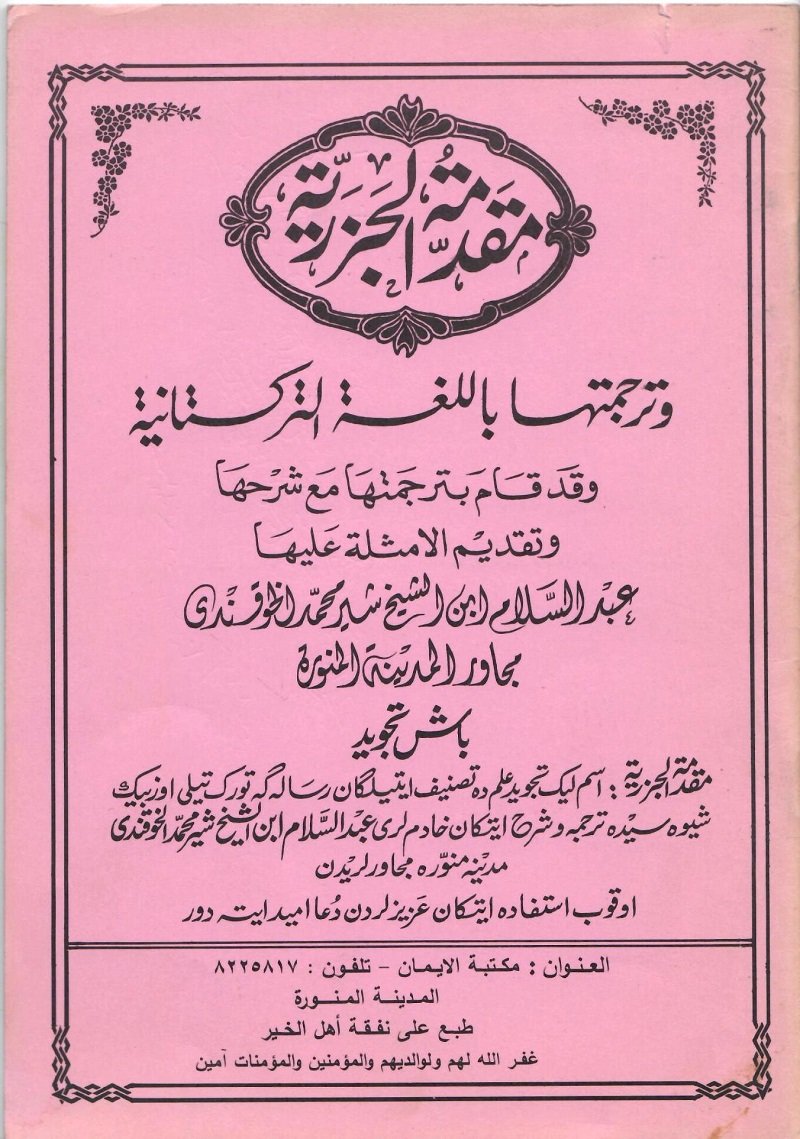 مقدمة الجزرية
وترجمتها باللغة التركستانية
وقد قام بترجمتها مع شرحها
وتقديم الامثلة عليها
عبد السلام ابن الشيخ شير محمد الخوقندى
مجاور المدينة المنورة
باش تجويد
مقدمة الجزرية : اسم ليك تجويد علم ده تصنيف ايتيلگان رساله گه تورك تيلى اوزبيك
شيوه سيده ترجمه و شرح ايتكان خادم لرى عبد السلام ابن الشيخ شير محمد الخوقندى
مدينه منوّره مجاور لريدن
اوقوب استفاده ايتكان عزيز لردن دعا اميد ايته دور
العنوان : مكتبة الايمان - تلفون : ٨٢٢٥٨١٧
المدينة المنورة
طبع على نفقة أهل الخير
غفر الله لهم ولوالديهم والمؤمنين والمؤمنات آمين